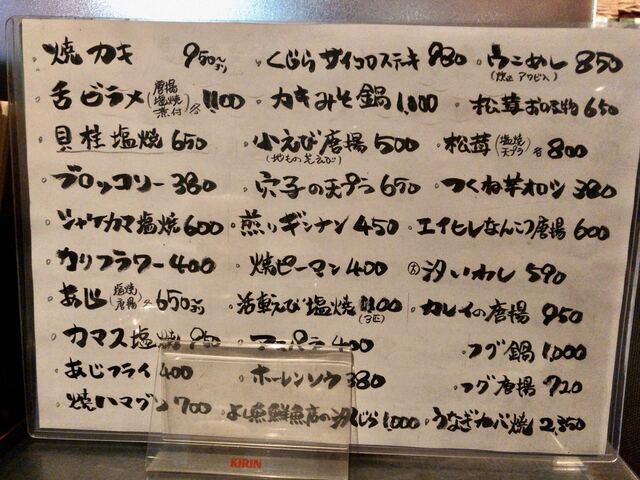 焼カキ 950〜より
舌ビラメ(唐揚 塩焼 煮付)各1,100
貝柱塩焼 650
ブロッコリー 380
シャケカマ塩焼 600
カリフラワー 400
あじ(塩焼 唐揚)各650より
カマス塩焼 950
あじフライ 400
焼ハマグリ 700
くじらサイコロステーキ 980
カキみそ鍋 1,100
小えび唐揚 500
(地もの芝えび)
穴子の天プラ 650
煎りギンナン 450
焼ピーマン 400
活車えび塩焼 1,100
(3匹)
400
ホーレンソウ 380
魚鮮魚店の汐くじら 1,000
ウニめし 850
松茸お吸物 650
松茸(塩焼 天プラ)各800
つくね芋オロシ 380
エイヒレなんこつ唐揚 600
(大)汐いわし 590
カレイの唐揚 950
フグ鍋 1,000
フグ唐揚 720
うなぎカバ焼 2,350
KIRIN